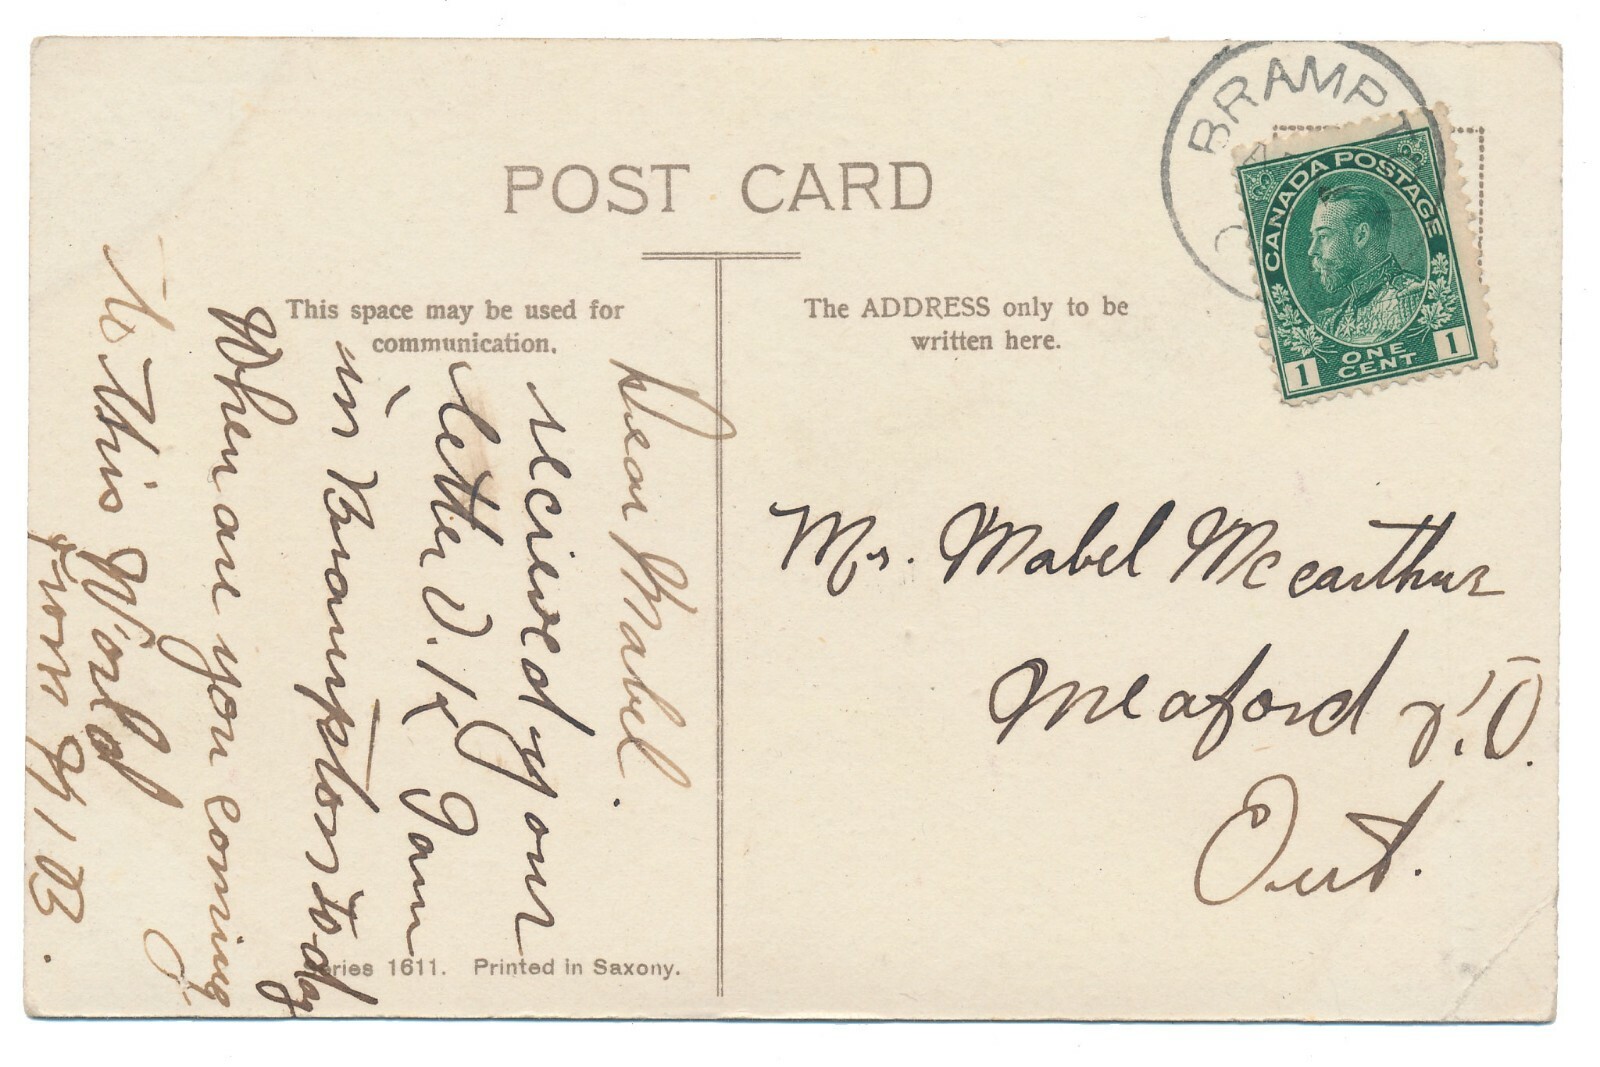 POST CARD
This space may be used for
communication.
The ADDRESS only to be
written here.
BRAMPT
CANADA POSTAGE
1 ONE CENT 1
Dear Mabel.
recieved your
letter O.K. I am
in Brampton to-day
When are you coming
to this World
From
Mr. Mabel Mccarthur
Meaford P.O.
Ont.
Series 1611. Printed in Saxony.